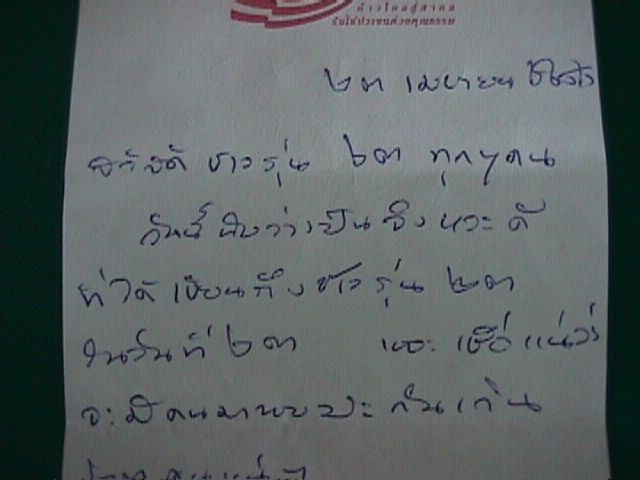 ก้าวไกลสู่สากล
รับใช้ปวงชนด้วยคุณธรรม
๒๓ เมษายน
สวัสดี ชาวรุ่น ๒๓ ทุกๆคน
วันนี้ นับว่าเป็น จังหวะดี
ที่ได้ เขียนถึง ชาวรุ่น ๒๓
ในวันที่ ๒๓ และ เชื่อแน่ว่า
จะมีคนมาพบปะ กันเกิน